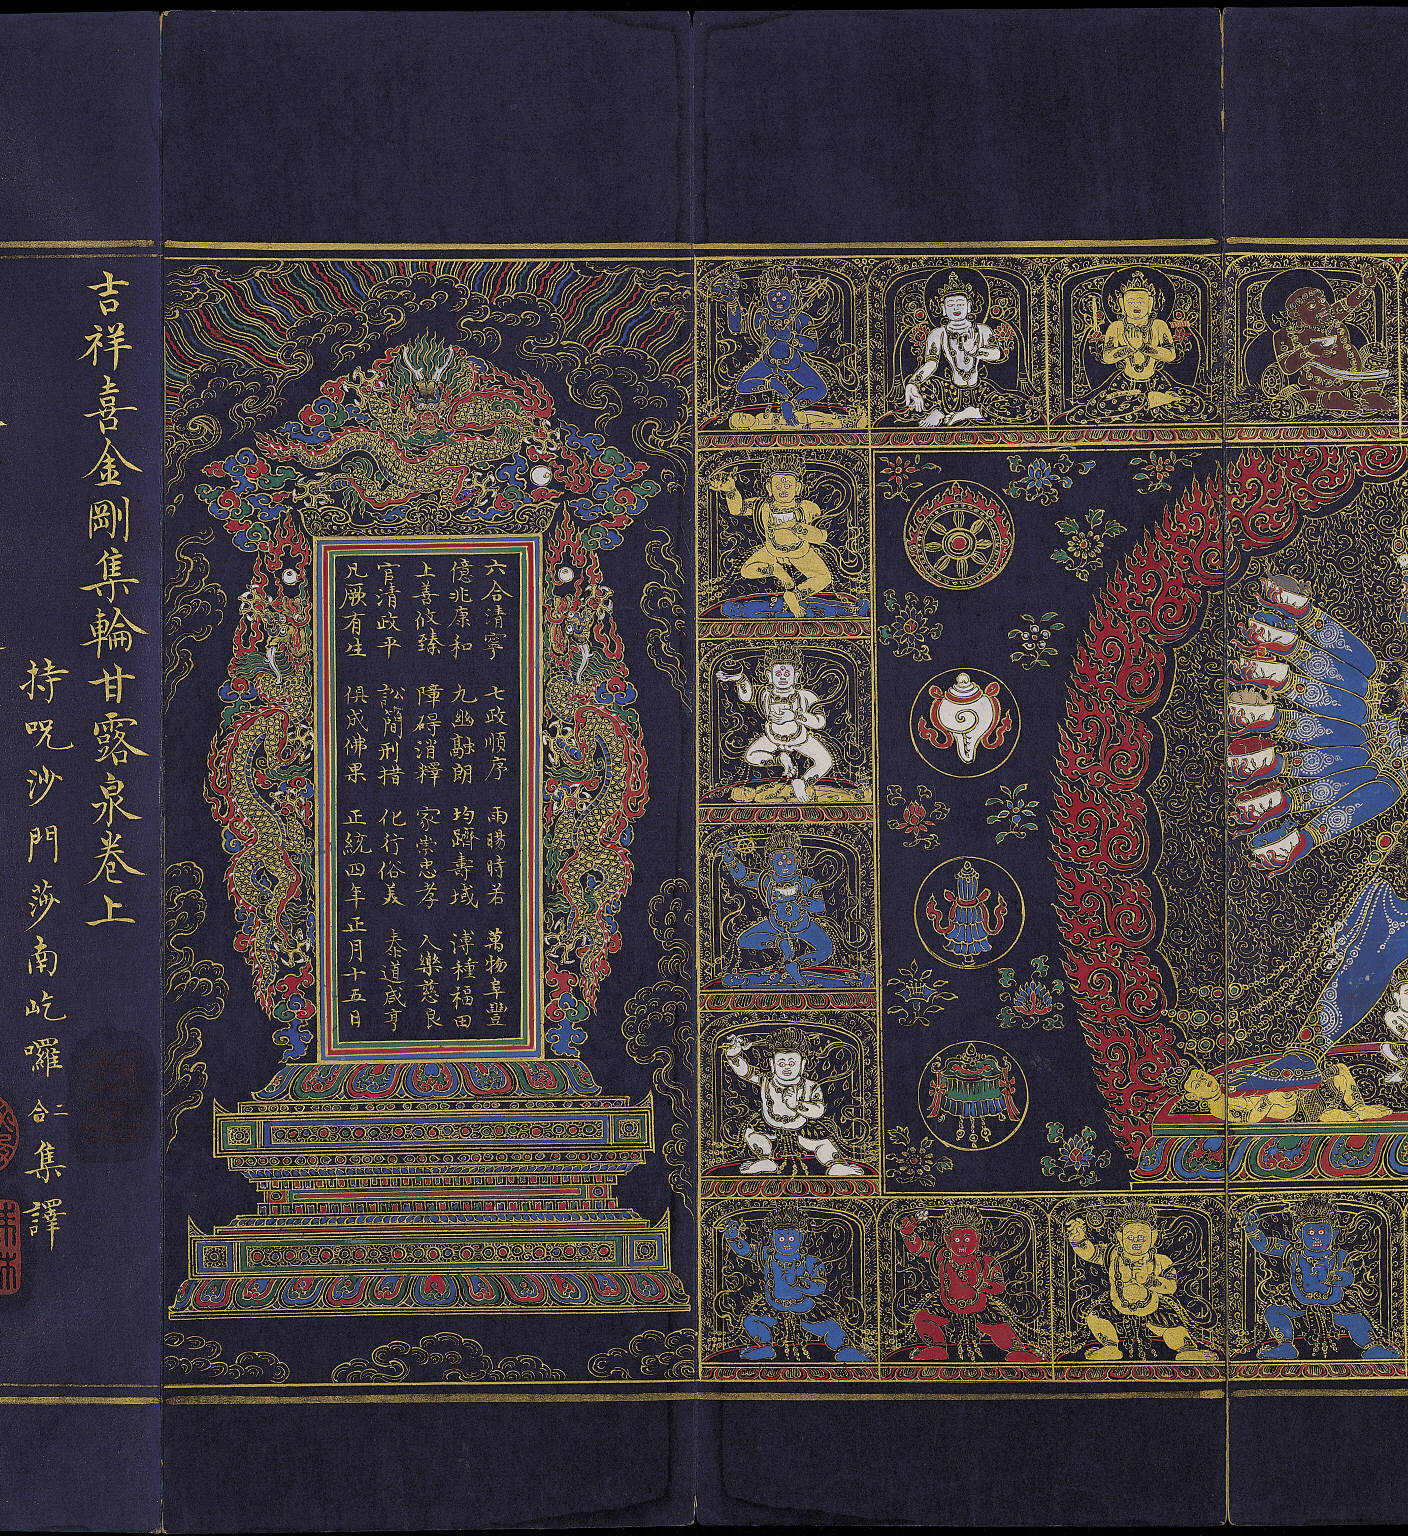 六合清寧　七政順序　雨暘時若　萬物阜豐
億兆康和　九幽融朗　均躋壽域　溥種福田
上善攸臻　障碍消釋　家崇忠孝　人樂慈良
官清政平　訟簡刑措　化行俗美　泰道咸亨
凡厥有生　俱成佛果　正統四年正月十五日
吉祥喜金剛集輪甘露泉卷上
持呪沙門莎南屹囉二合集譯